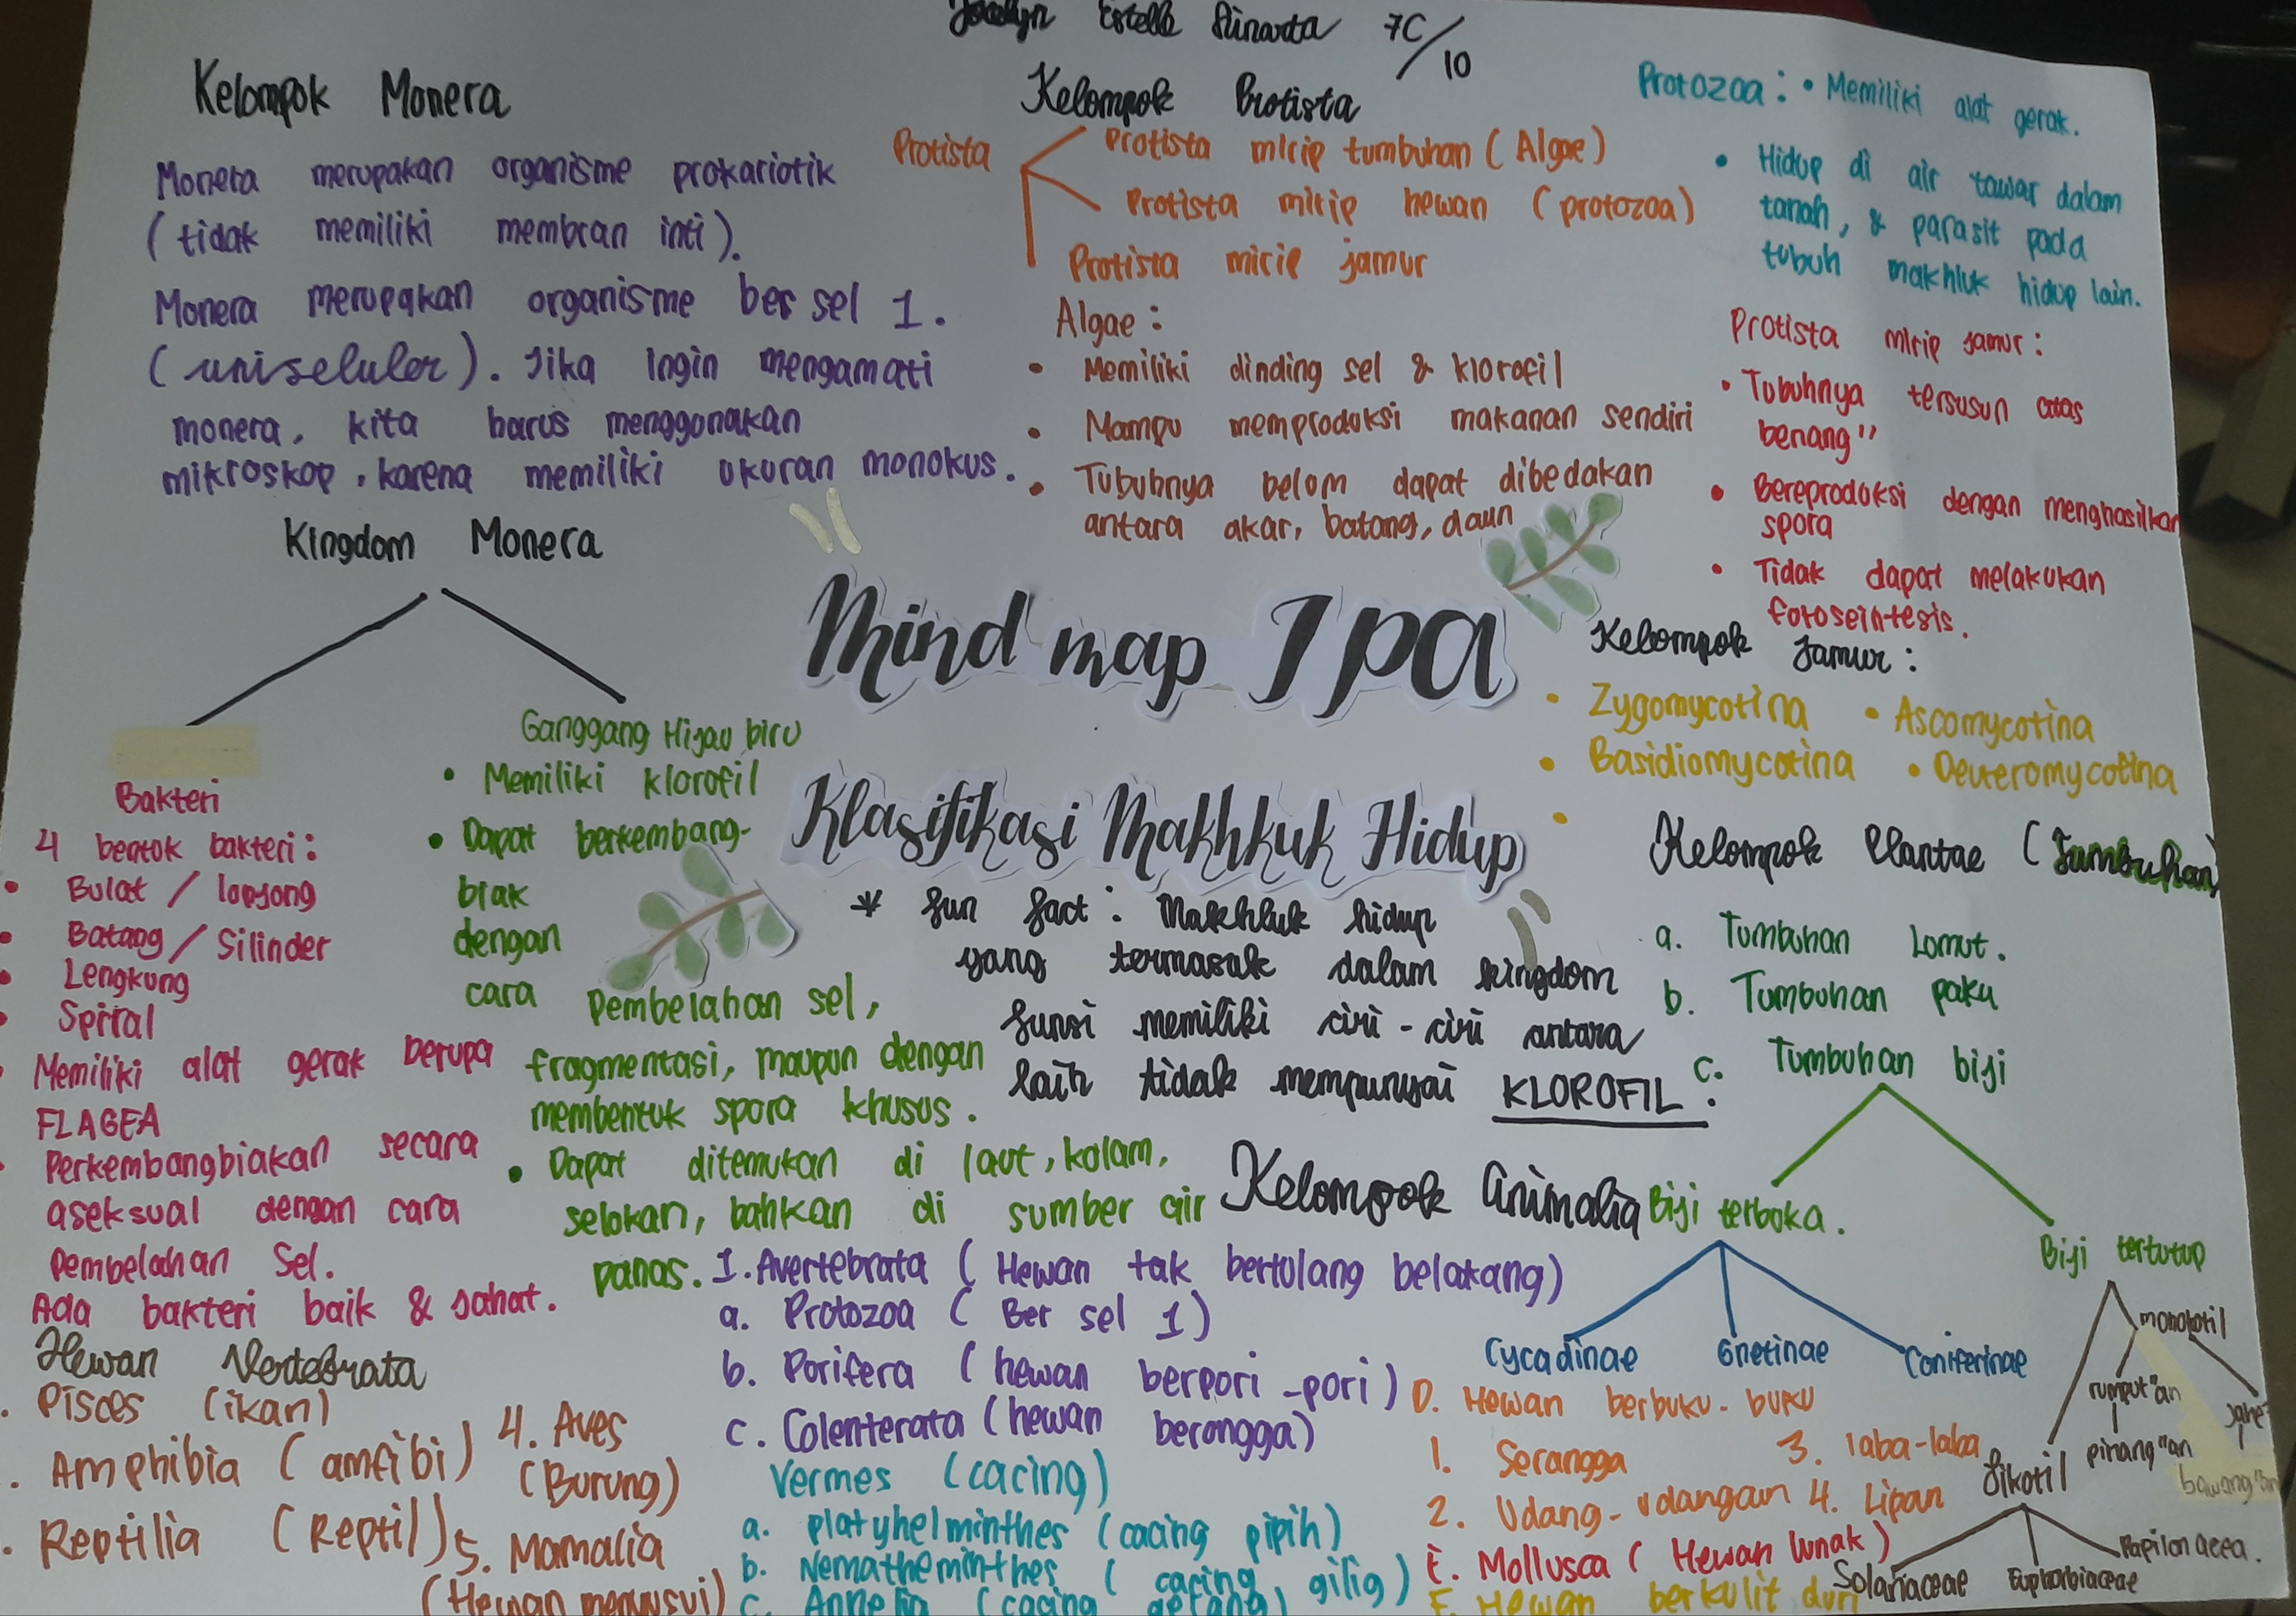 Jocelyn Estelle Sunarta 7C/10
Kelompok Monera
Monera merupakan organisme prokariotik
(tidak memiliki membran inti).
Monera merupakan organisme ber sel 1.
(uniseluler). Jika ingin mengamati
monera, kita harus menggunakan
mikroskop. karena memiliki ukuran monokus.
Kingdom Monera
Bakteri
4 bentuk bakteri:
• Bulat / lonjong
• Batang / Silinder
• Lengkung
• Spiral
• Memiliki alat gerak berupa
FLAGEA
• Perkembangbiakan secara
aseksual dengan cara
Pembelahan Sel.
Ada bakteri baik & jahat.
Ganggang Hijau biru
• Memiliki klorofil
• Dapat berkembang-
biak
dengan
cara Pembelahan sel,
fragmentasi, maupun dengan
membentuk spora khusus.
• Dapat ditemukan di laut, kolam,
selokan, bahkan di sumber air
panas.
Kelompok Protista
Protista
Protista mirip tumbuhan (Algae)
Protista mirip hewan (protozoa)
Protista mirip jamur
Algae:
• Memiliki dinding sel & klorofil
• Mampu memproduksi makanan sendiri
• Tubuhnya belum dapat dibedakan
antara akar, batang, daun
Protozoa: • Memiliki alat gerak.
• Hidup di air tawar dalam
tanah, & parasit pada
tubuh makhluk hidup lain.
Protista mirip jamur:
• Tubuhnya tersusun atas
benang"
• Bereproduksi dengan menghasilkan
spora
• Tidak dapat melakukan
fotoseintesis.
Mind map IPA
Klasifikasi Makhkuk Hidup
* fun fact: Makhluk hidup
yang termasuk dalam kingdom
funsi memiliki ciri-ciri antara
lain tidak mempunyai KLOROFIL.
Kelompok Jamur:
• Zygomycotina • Ascomycotina
• Basidiomycotina • Deuteromycotina
•
Kelompok Plantae (Tumbuhan)
a. Tumbuhan Lumut.
b. Tumbuhan paku
c. Tumbuhan biji
Biji terbuka.
Biji tertutup
Cycadinae Gnetinae Coniferinae
monokotil
rumput"an
jahe"
pinang"an
bawang"an
Dikotil
Solanaceae Euphorbiaceae Papilonacea.
Kelompok Animalia
1. Avertebrata (Hewan tak bertulang belakang)
a. Protozoa (Ber sel 1)
b. Porifera (hewan berpori-pori)
c. Colenterata (hewan berongga)
Vermes (cacing)
a. platyhelminthes (cacing pipih)
b. Nematheminthes (cacing gilig)
c. Annelia (cacing gelang)
D. Hewan berbuku-buku
1. Serangga 3. laba-laba
2. Udang-udangan 4. Lipan
E. Mollusca (Hewan lunak)
F. Hewan berkulit duri
Hewan Vertebrata
. Pisces (ikan)
. Amphibia (amfibi)
. Reptilia (Reptil)
4. Aves
(Burung)
5. Mamalia
(Hewan menyusui)